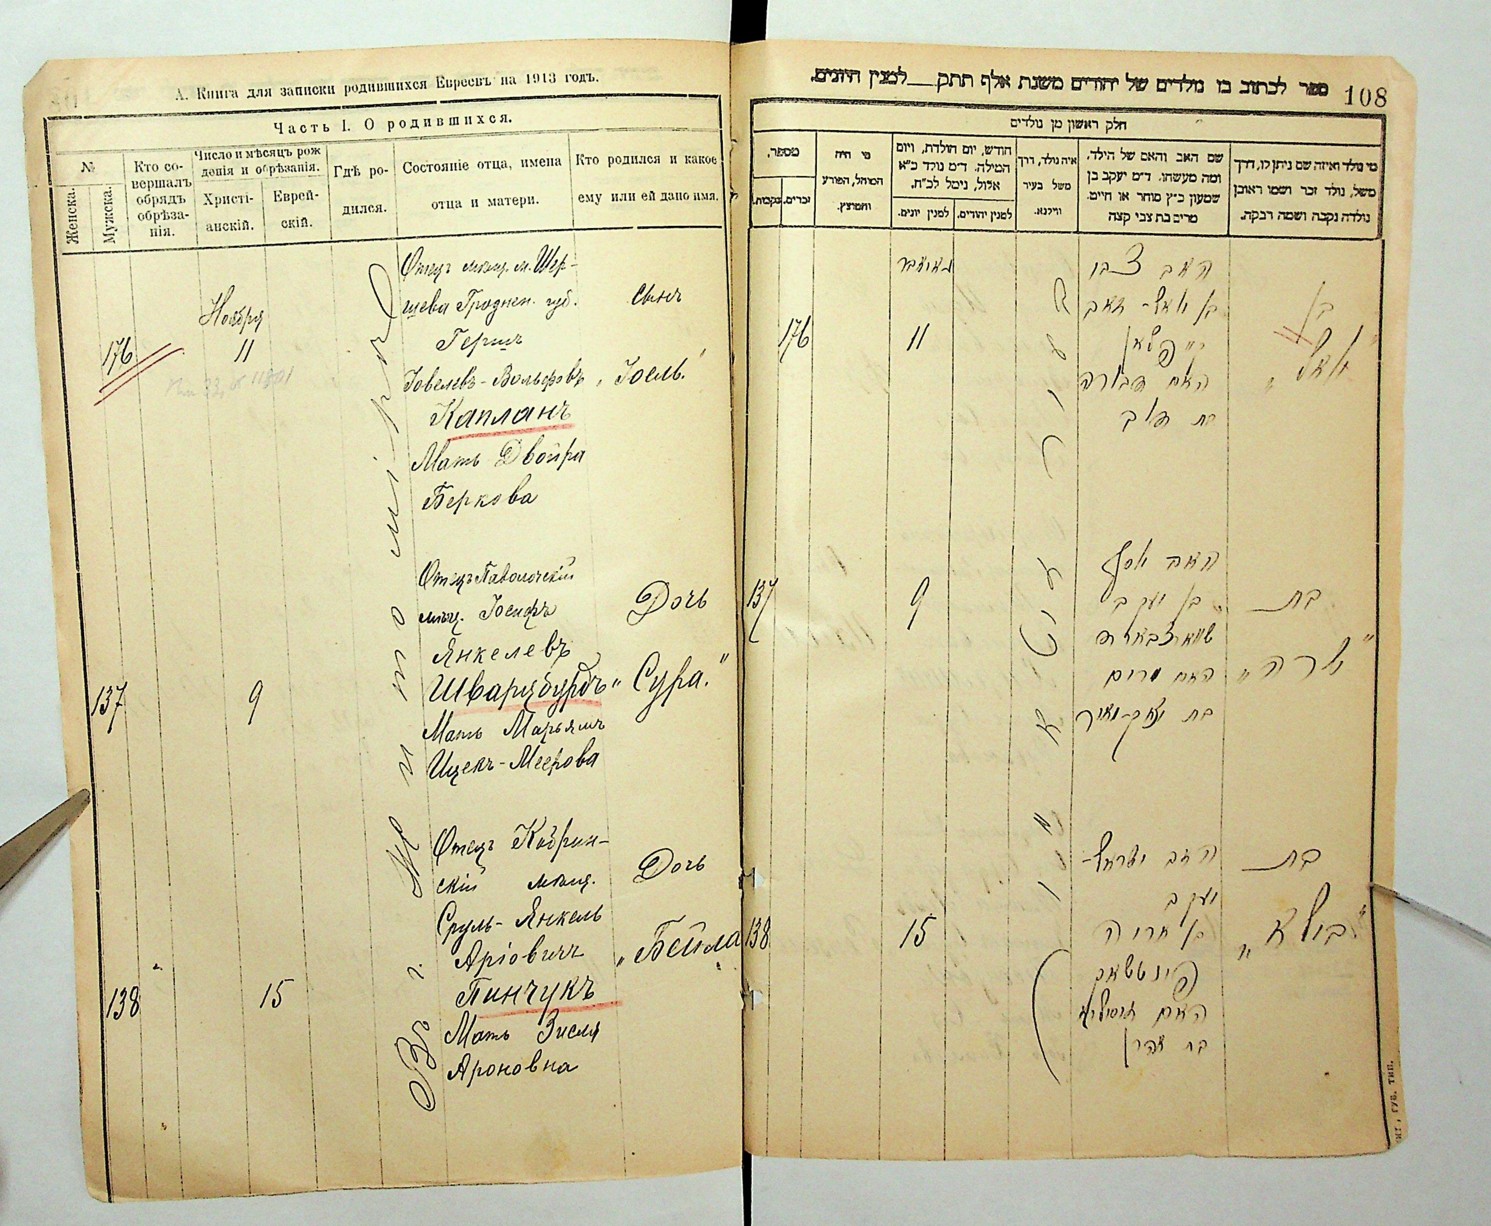 А. Книга для записки родившихся Евреевъ на 1913 годъ.
Часть I. О родившихся.
№
Женска.
Мужска.
Кто со-
вершалъ
обрядъ
обрѣза-
нія.
Число и мѣсяцъ рож
денія и обрѣзанія.
Христі-
анскій.
Еврей-
скій.
Гдѣ ро-
дился.
Состояніе отца, имена
отца и матери.
Кто родился и какое
ему или ей дано имя.
Въ г. Житомірѣ
176
Ноября
11
Отецъ мѣщ. м. Шер-
шева Гроднен. губ.
Гершъ
Іовелевъ-Вольфовъ
Капланъ
Мать Двойра
Беркова
Сынъ
„Іоель“
137
9
Отецъ Паволочскій
мѣщ. Іосифъ
Янкелевъ
Шварцбурдъ
Мать Марьямъ
Ицекъ-Меерова
Дочь
„Сура.“
138
15
Отецъ Кобрин-
скій мѣщ.
Сруль-Янкель
Аріовичъ
Пинчукъ
Мать Зисля
Ароновна
Дочь
„Бейла
ספר לכתוב בו נולדים של יהודים משנת אלף תתק__למנין היונים.
108
חלק ראשון מן נולדים
מספר,
נקבות,
זכרים,
מי היה
המוהל, הפורע
והמוצץ.
חודש, יום הולדת, ויום
המילה. ד״מ נולד כ״א
אלול, נימל לכ״ח.
למנין יונים.
למנין יהודים.
איה נולד, דרך
משל בעיר
ווילנא.
שם האב והאם של הילד,
ומה מעשהו. ד״מ יעקב בן
שמעון כ״ץ סוחר או חיים.
מרים בת צבי קצה
מי נולד ואיזה שם ניתן לו, דרך
משל, נולד זכר ושמו ראובן
נולדה נקבה ושמה רבקה.
176
11
האב צבי
קאפלאן
האם דבורה
בת דוב
בן
„יואל“
137
9
האב יוסף
בן יעקב
האם מרים
בת יצחק-מאיר
בת
„שרה“
138
15
האב ישראל-
יעקב
בן אריה
פינטשוק
האם
בת אהרן
בת
„בולא“